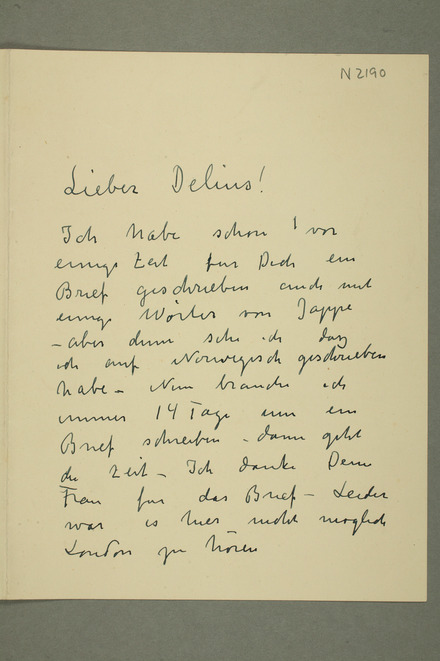 N 2190
Lieber Delius!
Ich habe schon vor
einige Zeit fur Dich ein
Brief geschrieben auch mit
einige Wörter von Jappe
– aber dann sehe ich dass
ich auf Norwegisch geschrieben
habe – Nun brauche ich
immer 14 Tage um ein
Brief schreiben – dann geht
die Zeit – Ich danke Deine
Frau fur das Brief – Leider
war es hier nicht moglich
London zu hören